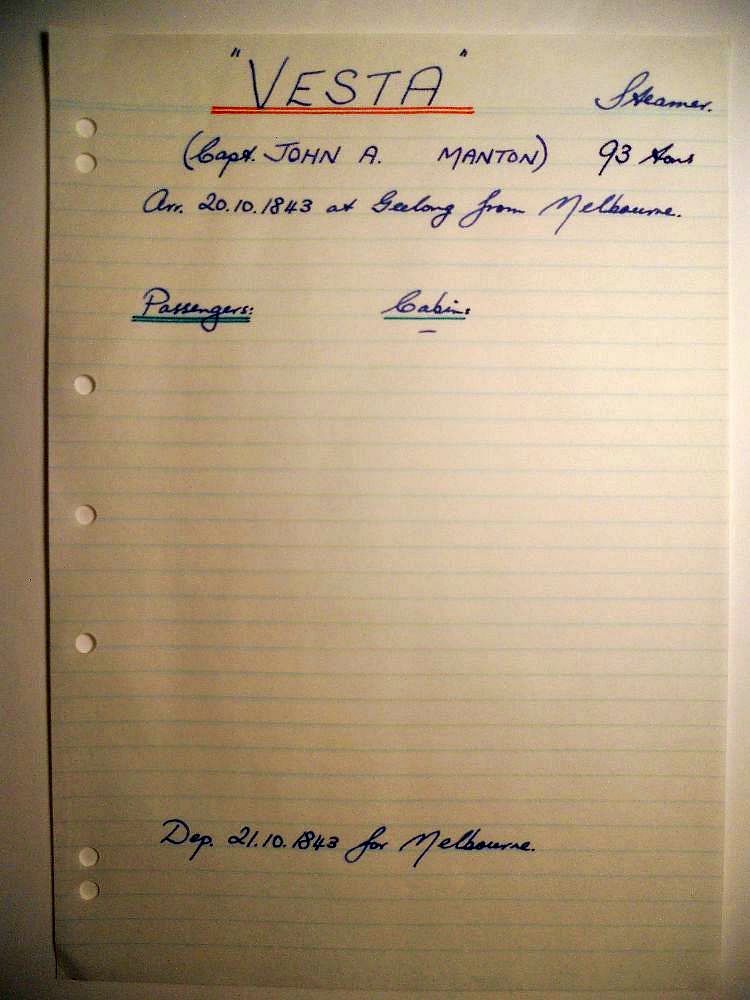 "VESTA" Steamer.
(Capt. JOHN A. MANTON) 93 tons
Arr. 20.10.1843 at Geelong from Melbourne.
Passengers: Cabin:
–
Dep. 21.10.1843 for Melbourne.